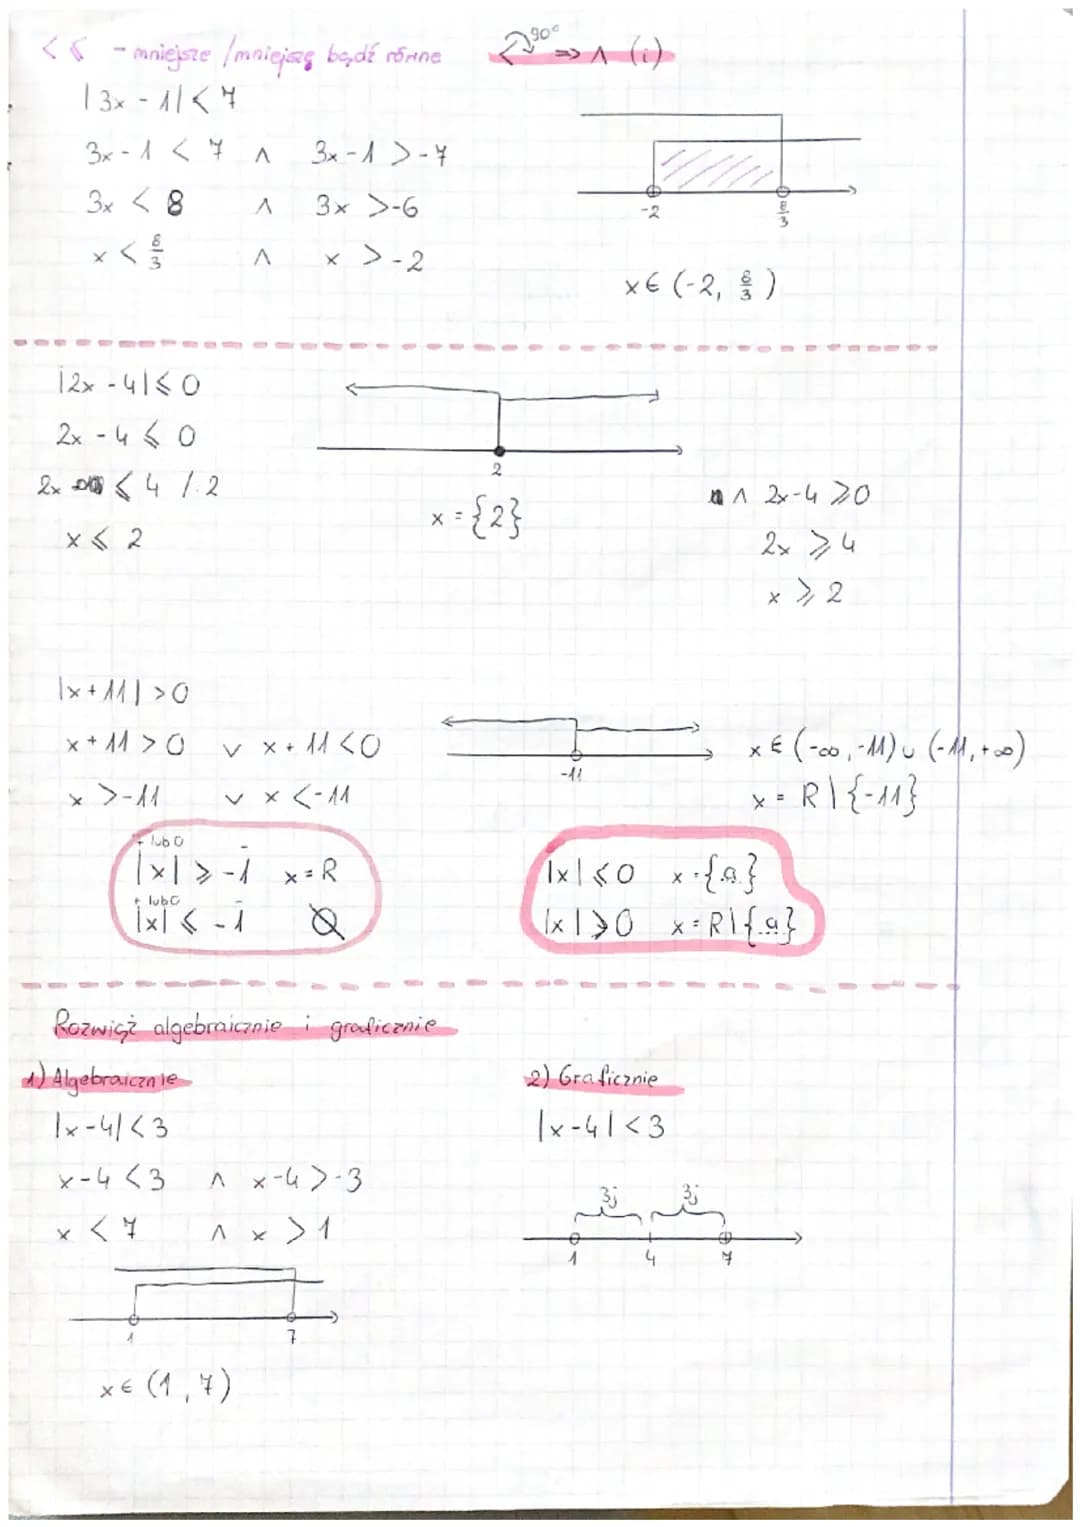 < ⩽ - mniejsze /mniejszę bądź równe
< 90° ⇒ ∧ (i)
|3x - 1| < 7
3x - 1 < 7 ∧ 3x - 1 > -7
3x < 8 ∧ 3x > -6
x < 8/3 ∧ x > -2
-2 8/3
x ∈ (-2, 8/3)
|2x - 4| ⩽ 0
2x - 4 ⩽ 0
2x ⩽ 4 /:2
x ⩽ 2
2
x = {2}
∧ 2x-4 ⩾ 0
2x ⩾ 4
x ⩾ 2
|x + 11| > 0
x + 11 > 0 ∨ x + 11 < 0
x > -11 ∨ x < -11
-11
x ∈ (-∞, -11) ∪ (-11, +∞)
x = R \ {-11}
+ lub 0 -
|x| ⩾ -1 x = R
+ lub 0 -
|x| ⩽ -1 Ø
|x| ⩽ 0 x = {.a.}
|x| ⩾ 0 x = R \ {.a.}
Rozwiąż algebraicznie i graficznie
1) Algebraicznie
|x-4| < 3
x-4 < 3 ∧ x-4 > -3
x < 7 ∧ x > 1
1 7
x ∈ (1, 7)
2) Graficznie
|x-4| < 3
3j 3j
1 4 7